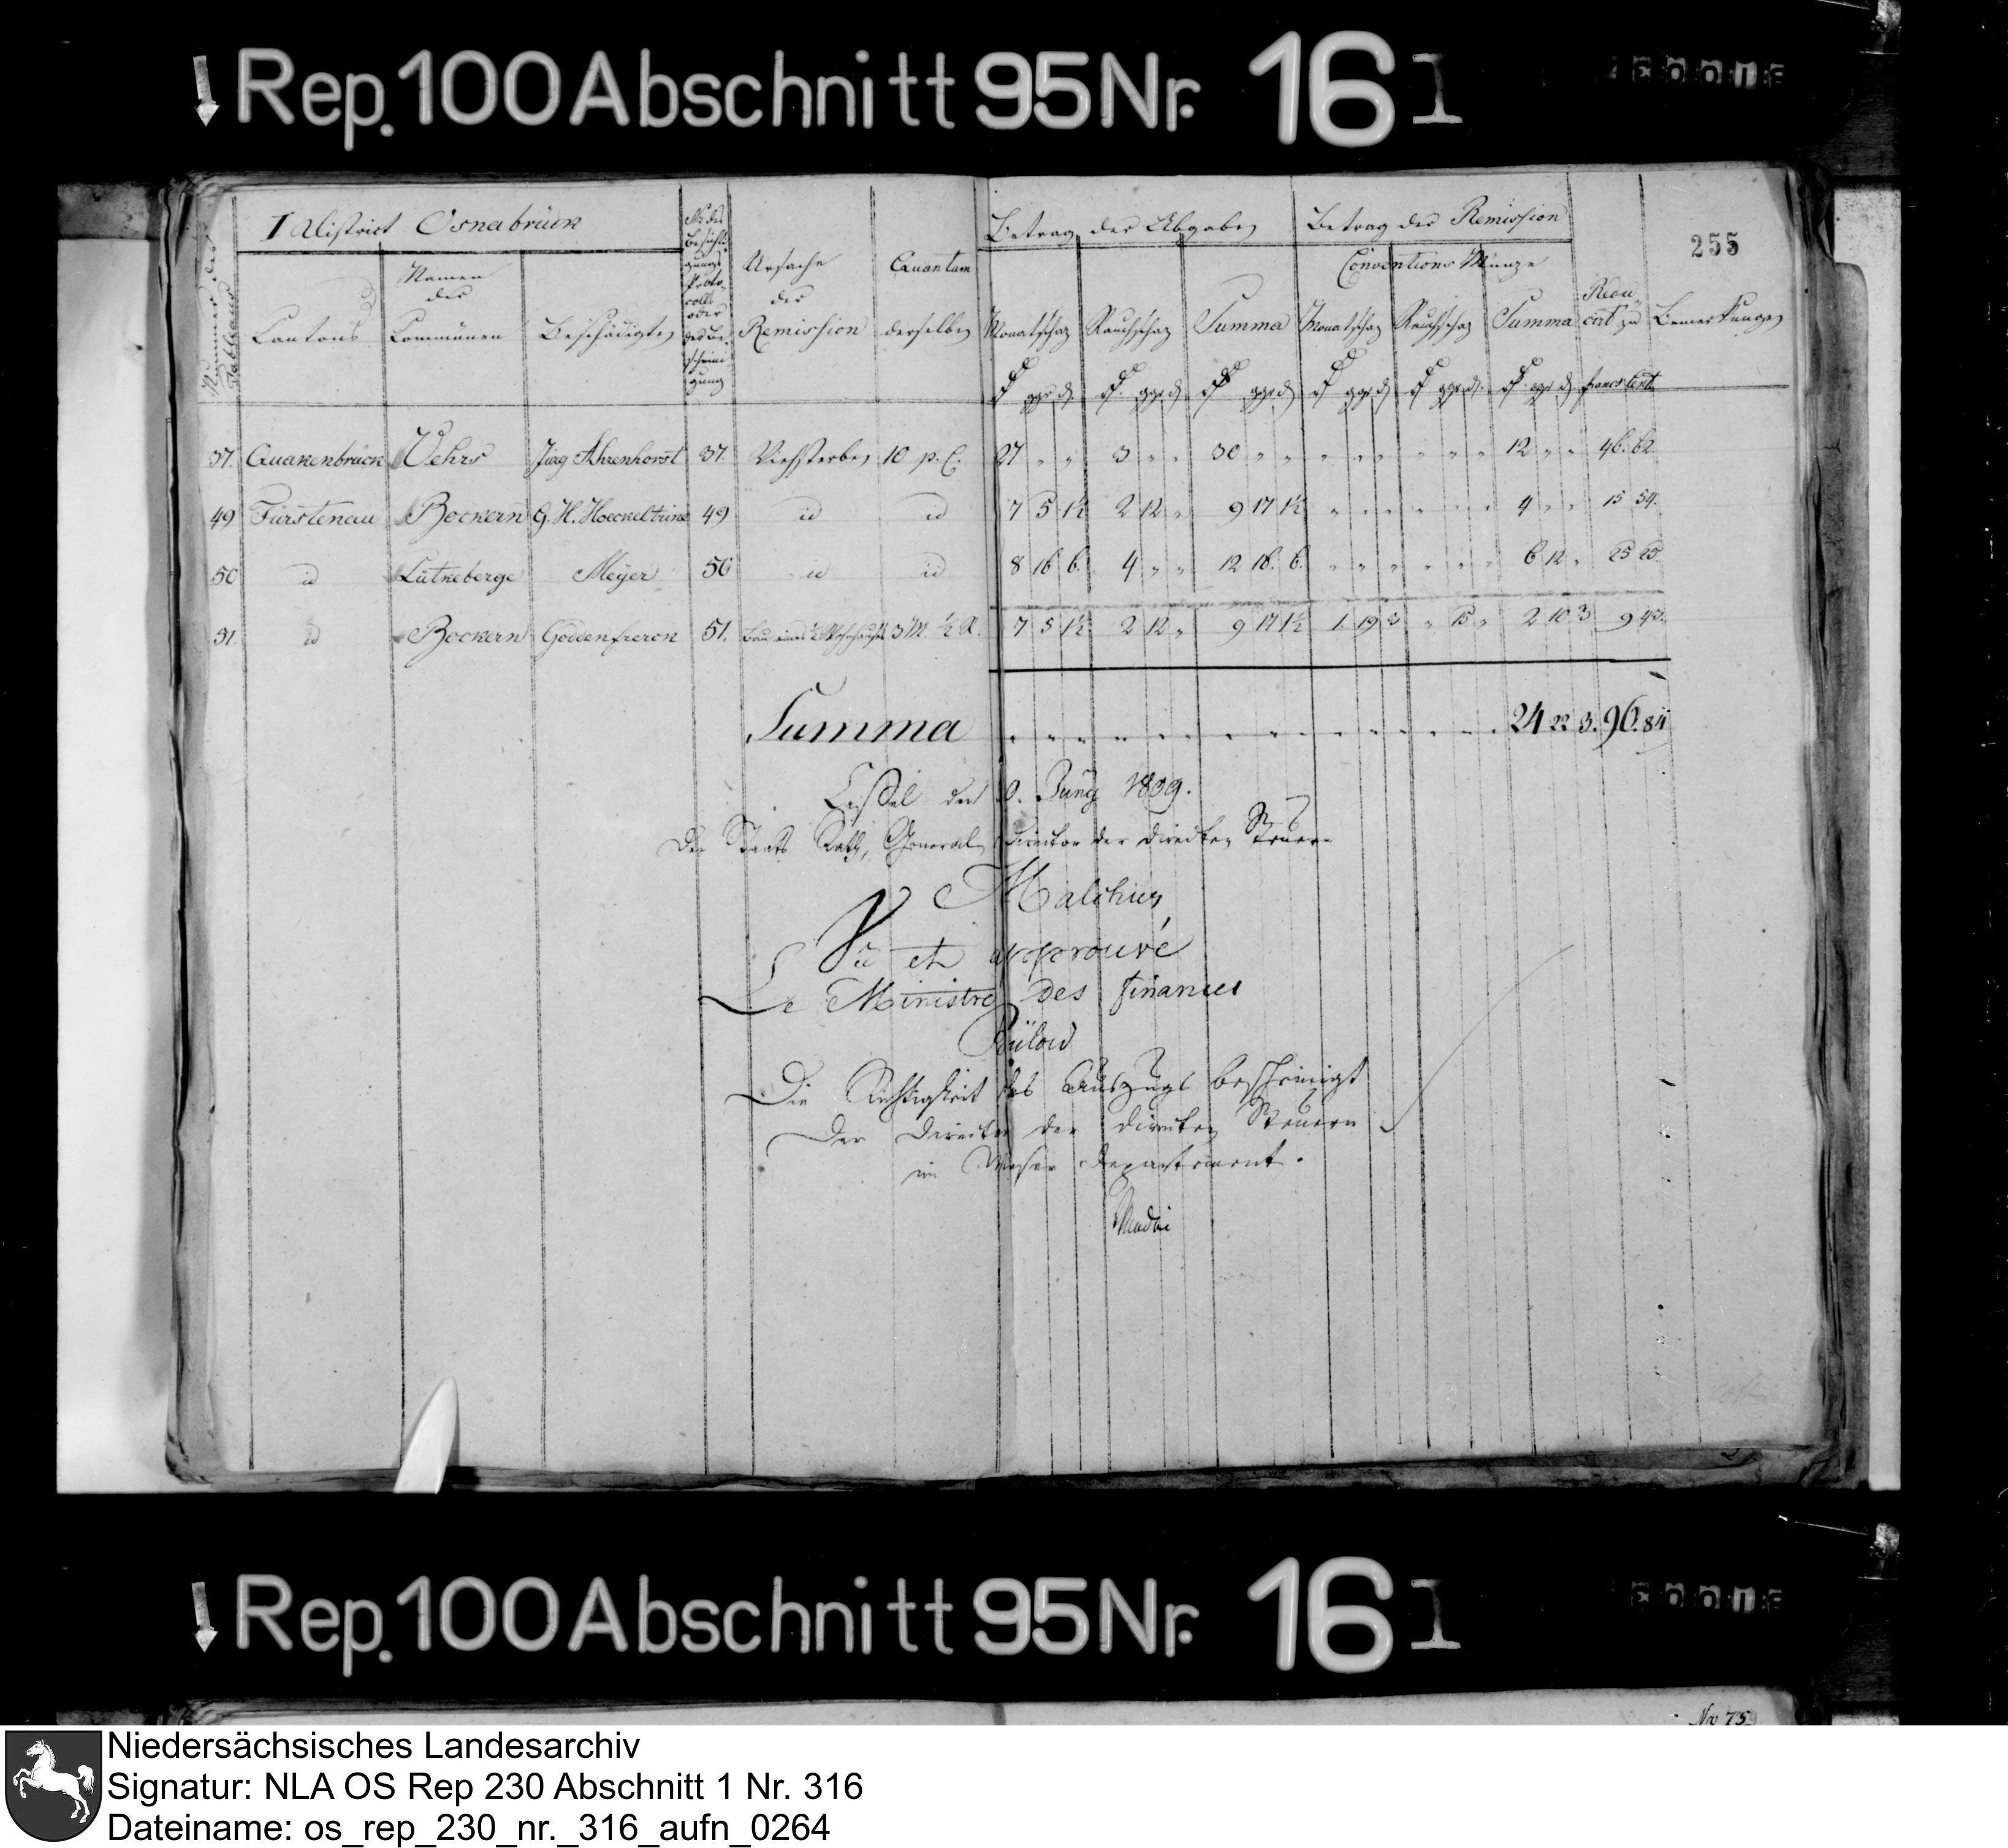 Rep. 100 Abschnitt 95 Nr. 16 I
255
I District Osnabrück
Nummer der Tableaus
Cantons
Namen der Communen
Beschädigten
No des Besichtigungs Protocolls oder der Bescheinigung
Ursache der Remission
Quantum derselben
Betrag der Abgaben
Monatschaz
Rauchschaz
Summa
Betrag der Remission
Conventions Münze
Monatschaz
Rauchschaz
Summa
Reducirt zu
francs Cent.
Bemerkungen
37. Quakenbrück Wehrs Jürg Ahrenhorst 37. Viehsterben 10 p. C. 27 " " 3 " " 30 " " " " " " " " 12 " " 46. 62
49 Fürstenau Bockern G. H. Hoeckeltrine 49 id id 7 5 1½ 2 12 " 9 17 1½ " " " " " " 4 " " 15 54.
50 id Lütkeberge Meyer 50 id id 8 16 6. 4 " " 12 16. 6. " " " " " " 6 12 " 25 25.
51. id Bockern Goddenfreron 51. Bau eines ½ Wohnhauses 3 M. ½ R. 7 5 1½ 2 12 " 9 17 1½ 1. 19 3 " 15 " 2 10 3 9 43.
Summa 24 22 3. 96. 84
Cassel den 6. Juny 1809.
Der Staats Rath, General Director der directen Steuern
Malchus
Vu et approuvé
Le Ministre des finances
Bülow
Die Richtigkeit des Auszugs bescheinigt
Der Director der directen Steuern
im Weser Departement.
Madai
Rep. 100 Abschnitt 95 Nr. 16 I
No 75
Niedersächsisches Landesarchiv
Signatur: NLA OS Rep 230 Abschnitt 1 Nr. 316
Dateiname: os_rep_230_nr._316_aufn_0264